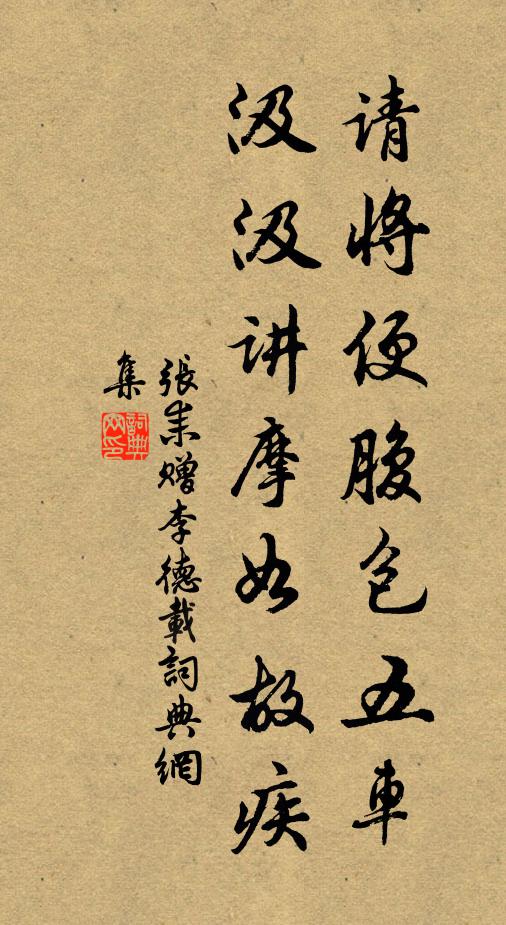 请将便腹包五車
汲汲讲摩如故疾
張耒赠李德載詞典網
集
詞典
网印